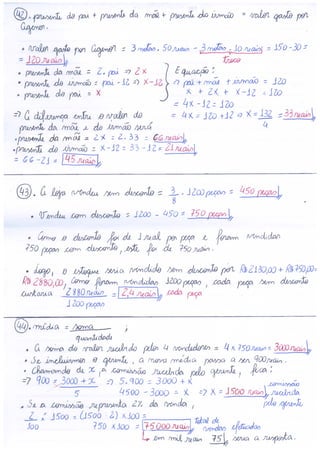 42. presente do pai + presente da mãe + presente do irmão = valor gasto por
Cigomar.
• valor gasto por Cigomar = 3 notas . 50 reais - 3 notas . 10 reais = 150 - 30 =
= 120 reais troco
• presente da mãe = 2 . pai => 2X
• presente do irmão = pai - 12 => X - 12
• presente do pai = X
Equação:
=> pai + mãe + irmão = 120
X + 2X + X - 12 = 120
= 4X - 12 = 120
= 4X = 120 + 12 => X = 132 = 33 reais
4
=> A diferença entre o valor do
presente da mãe e do irmão será
• presente da mãe = 2X = 2 . 33 = 66 reais
• presente do irmão = X - 12 = 33 - 12 = 21 reais
= 66 - 21 = 45 reais
43. A loja vendeu sem desconto = 3 . 1200 peças = 450 peças
8
• Vendeu com desconto = 1200 - 450 = 750 peças
• Como o desconto foi de 1 real por peça e foram vendidas
750 peças com desconto, este foi de 750 reais.
• Logo, o estoque seria vendido sem desconto por R$ 2130,00 + R$ 750,00 =
R$ 2880,00, como foram vendidas 1200 peças, cada peça sem desconto
custaria 2880 reais = 2,4 reais cada peça
1200 peças
44. média = soma ;
quantidade
• A soma do valor recebido pelos 4 vendedores = 4 x 750 reais = 3000 reais
• Se incluirmos o gerente, a nova média passa a ser 900 reais.
• Chamando de x, a comissão recebida pelo gerente, fica:
=> 900 = 3000 + x => 5 . 900 = 3000 + x
5 4500 - 3000 = x => x = 1500 reais comissão recebida
pelo gerente
• Se a comissão representa 2% da venda,
2 : 1500 = (1500 : 2) x 100 =
100 750 x 100 = 75000 reais Total de vendas efetuadas
em mil reais 75 seria a resposta.